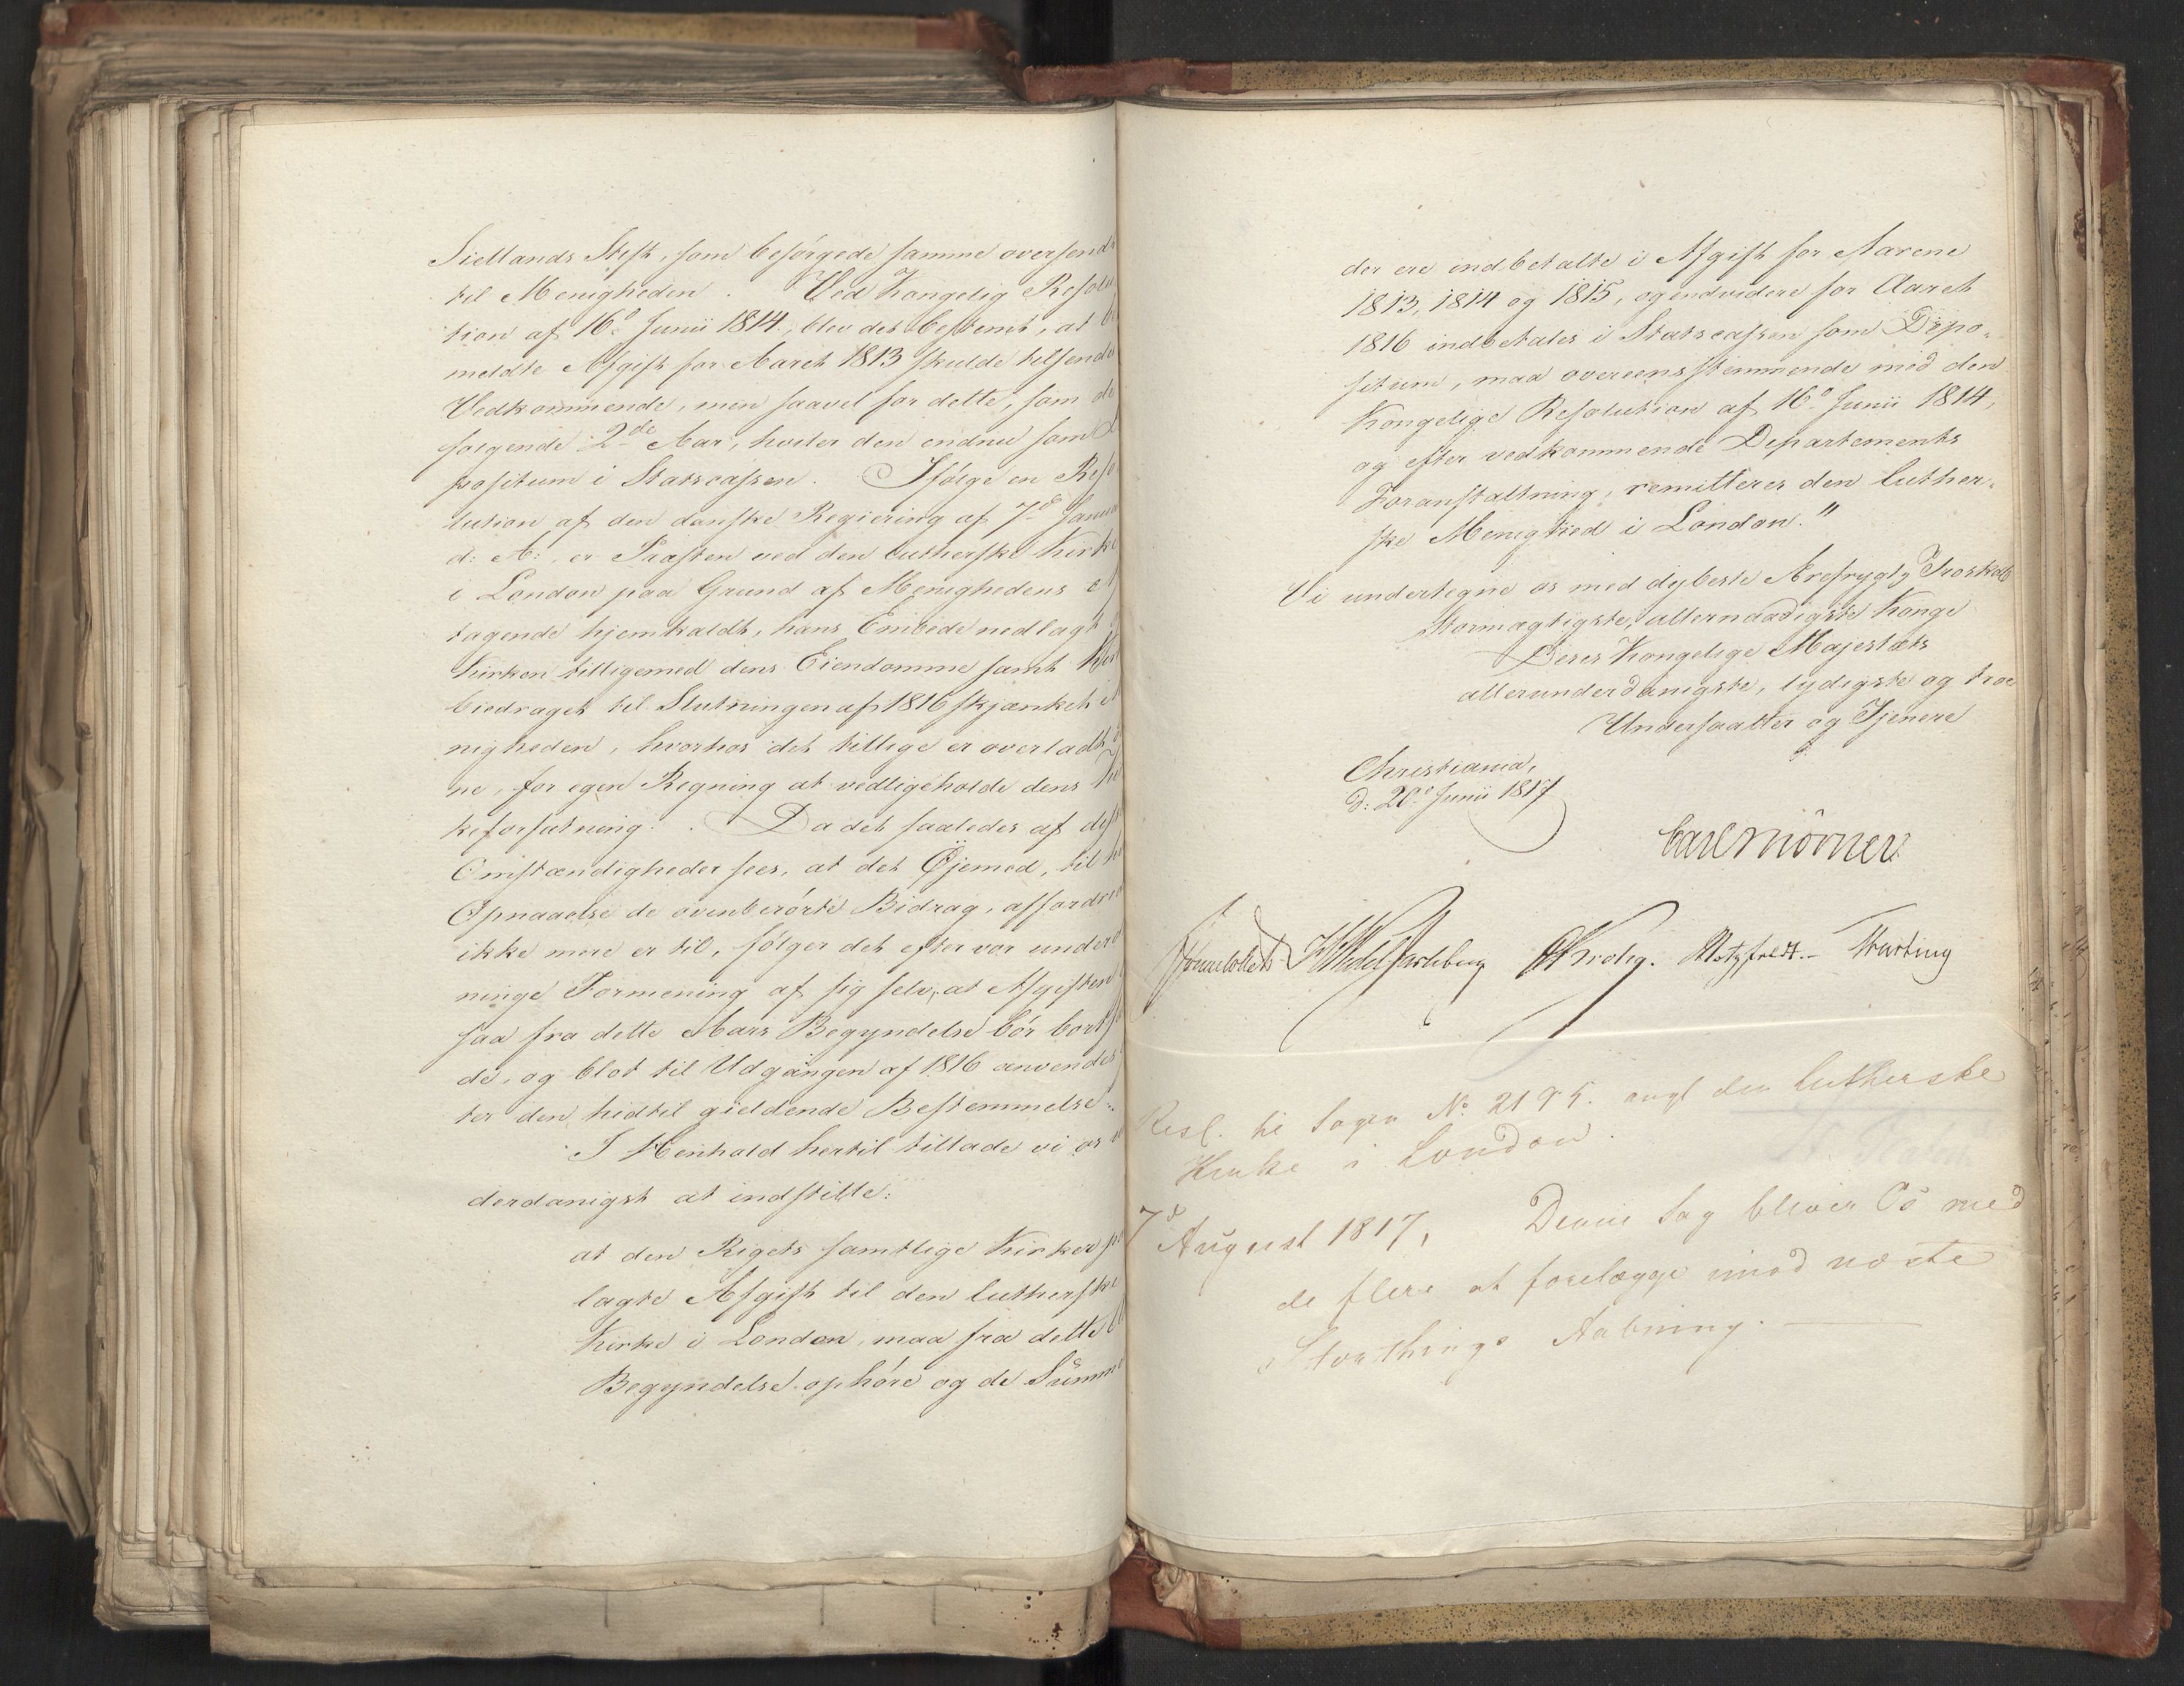 Siellands Stift, som besørgede samme oversendt
til Menigheden. Ved Kongelig Resolu
tion af 16de Junii 1814, blev det bestemt, at be
meldte Afgift for Aaret 1813 skulde tilsendes
Vedkommende, men saavel for dette, som de
følgende 2de Aar, hviler den endnu som De
positum i Statscassen. Ifølge en Reso
lution af den danske Regiering af 7de Januar
d: A:, er Præsten ved den lutherske Kirke
i London paa Grund af Menighedens Af
tagende hjemkaldt, hans Embede nedlagt
Kirken tilligemed dens Eiendomme samt
bidraget til Slutningen af 1816 skjænket
nigheden, hvorhos det tillige er overladt
ne, for egen Regning at vedligeholde dens Kir
keforfatning. Da det saaledes af disse
Omstændigheder sees, at det Øjemed, til
Opnaaelse de ovenberørte Bidrag, affordres
ikke mere er til, følger det efter vor underd
ninge Formening af sig selv, at Afgiften
saa fra dette Aars Begyndelse bør bortfa
de, og blot til Udgangen af 1816 anvendes
ter den hidtil gieldende Bestemmelse.
I Henhold hertil tillade vi os
derdanigst at indstille:
at den Rigets samtlige Kirker paa
lagte Afgift til den lutherske
Kirke i London, maa fra dette
Begyndelse ophøre og de Summer
der ere indbetalte i Afgift for Aarene
1813, 1814 og 1815, og endvidere for Aaret
1816 indbetales i Statscassen som Depo-
situm, maa overeensstemmende med den
Kongelige Resolution af 16de Junii 1814,
og efter vedkommende Departements
Foranstaltning, remitteres den luther-
ske Menighed i London."
Vi undertegne os med dybeste Ærefrygt og Troskab
Stormægtigste, allernaadigste Konge
Deres Kongelige Majestæts
allerunderdanigste, lydigste og troe
Undersaatter og Tjenere
Christiania,
d: 20de Junii 1817
Carl Mörner
Sommerhielm HWedel Jarlsberg Krohg. Motzfeldt.- 
Resl. til Sagen No 2195. angl den lutherske
Kirke i London.
7de August 1817, Denne Sag bliver Os med
de flere at forelægge imod næste
Storthings Aabning.